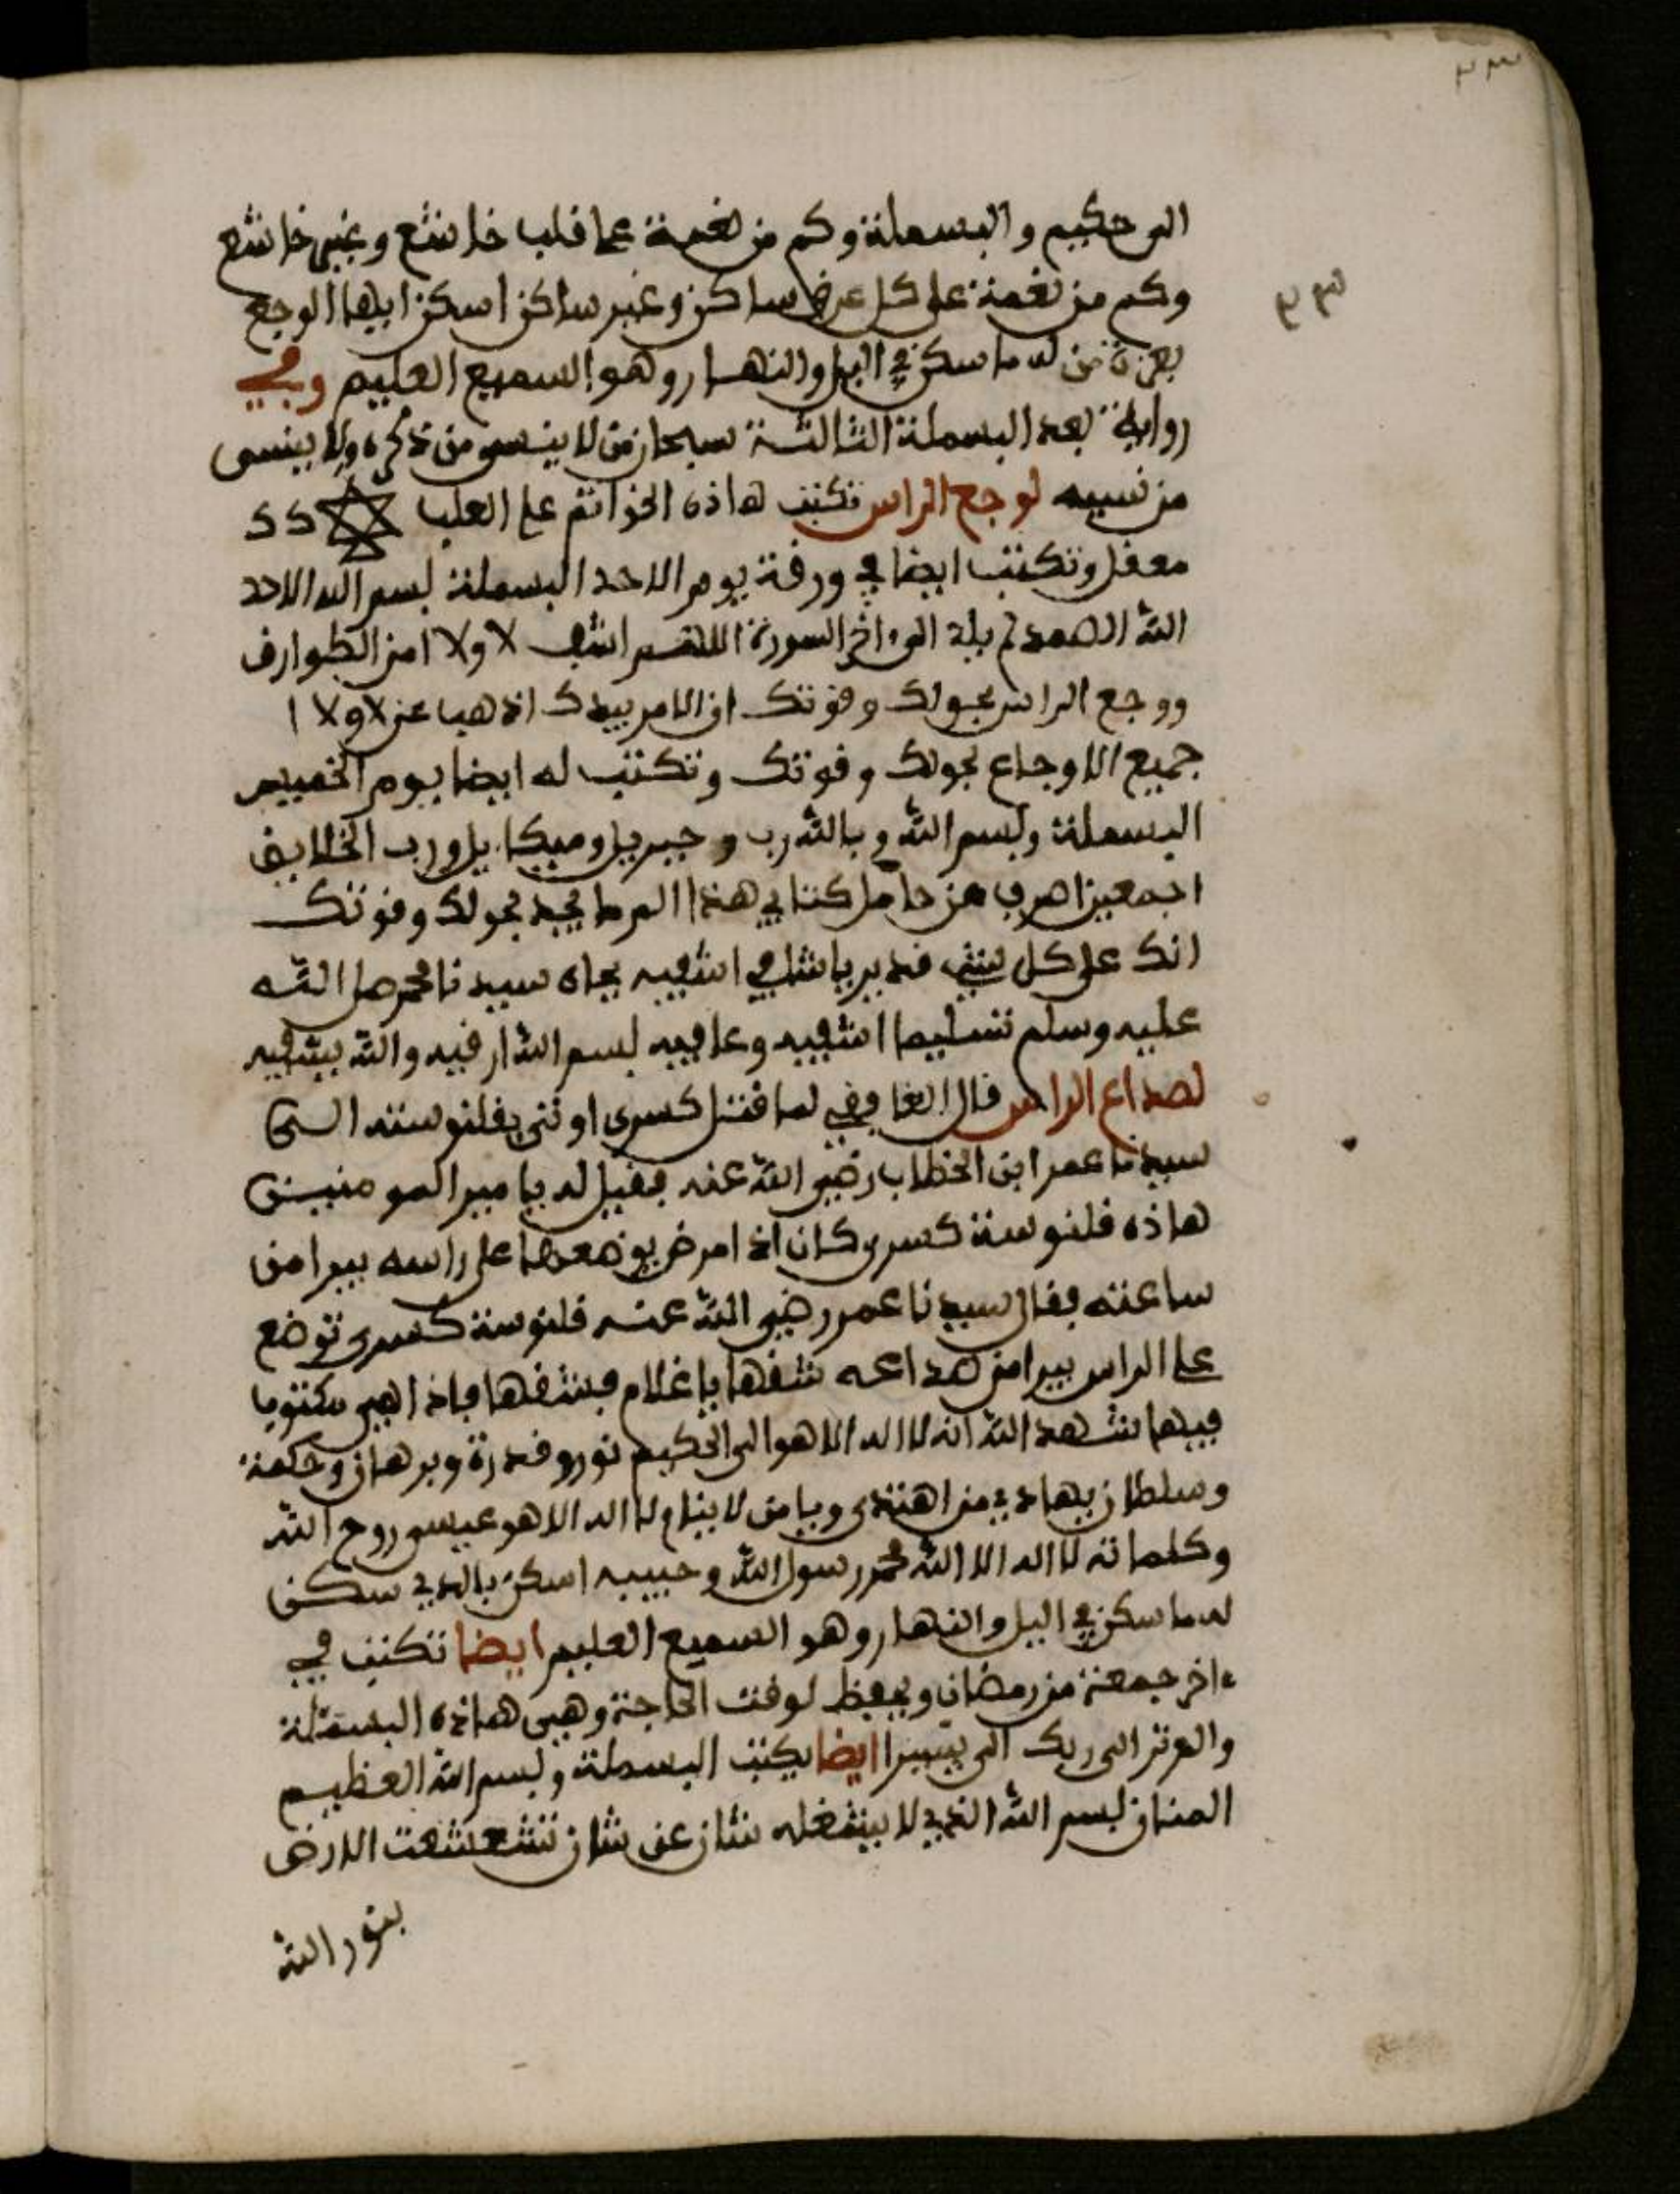 ٣٣
٣٣
الى حكيم والبسملة وكم من نعمة على قلب خاشع وغير خاشع
وكم من نعمة على كل عرض ساكن وغير ساكن اسكن ايها الوجع
بعزة من له ما سكن في اليل والنهار وهو السميع العليم وفي
رواية بعد البسملة الثالثة سبحان من لا ينسى من ذكره ولا ينسى
من نسيه لوجع الراس تكتب هاذه الخواتم على
معقل وتكتب ايضا في ورقة يوم الاحد البسملة بسم الله الاحد
الله الصمد لم يلد الى ءاخر السورة اللهم اشف لا ولا امن الطوارق
ووجع الراس بحولك وقوتك ان الامر بيدك اذهب عن لا ولا ا
جميع الاوجاع بحولك وقوتك وتكتب له ايضا يوم الخميس
البسملة وبسم الله وبالله رب وجبريل وميكايل ورب الخلايق
اجمعين اصرف عن حامل كتابي هذا الم ما يجد بحولك وقوتك
انك على كل شيء قدير يا شافي اشفيه بجاه سيدنا محمد صلى الله
عليه وسلم تسليما اشفيه وعافيه بسم الله ارقيه والله يشفيه
لصداع الراس قال الغافقي لما قتل كسرى اوتي بقلنوسته الى
سيدنا عمر ابن الخطاب رضي الله عنه فقيل له يا مير المومنين
هاذه قلنوسة كسرى كان اذا مرض يوضعوها على راسه يبرا من
ساعته فقال سيدنا عمر رضي الله عنه قلنوسة كسرى توضع
على الراس يبرا من صداعه شقها يا غلام فشقها فاذا هي مكتوبا
فيها شهد الله انه لا اله الا هو الى الحكيم نور وقدرة وبرهان وحكمة
وسلطان يهادي من اهتدى ويا من لا ينام لا اله الا هو عيسى روح الله
وكلماته لا اله الا الله محمد رسول الله وحبيبه اسكن بالذي سكن
له ما سكن في اليل والنهار وهو السميع العليم ايضا تكتب في
ءاخر جمعة من رمضان ويحفظ لوقت الحاجة وهي هاذه البسملة
والم تر الى ربك الى يسيرا ايضا يكتب البسملة وبسم الله العظيم
المنان بسم الله الذي لا يشغله شان عن شان تشعشعت الارض
بنور الله